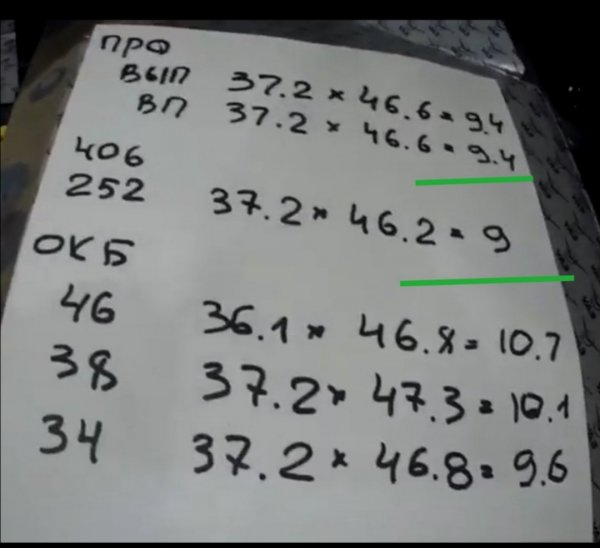 ПРФ
ВЫП 37.2 × 46.6 = 9.4
ВП 37.2 × 46.6 = 9.4
406
252 37.2 × 46.2 = 9
ОКБ
46 36.1 × 46.8 = 10.7
38 37.2 × 47.3 = 10.1
34 37.2 × 46.8 = 9.6